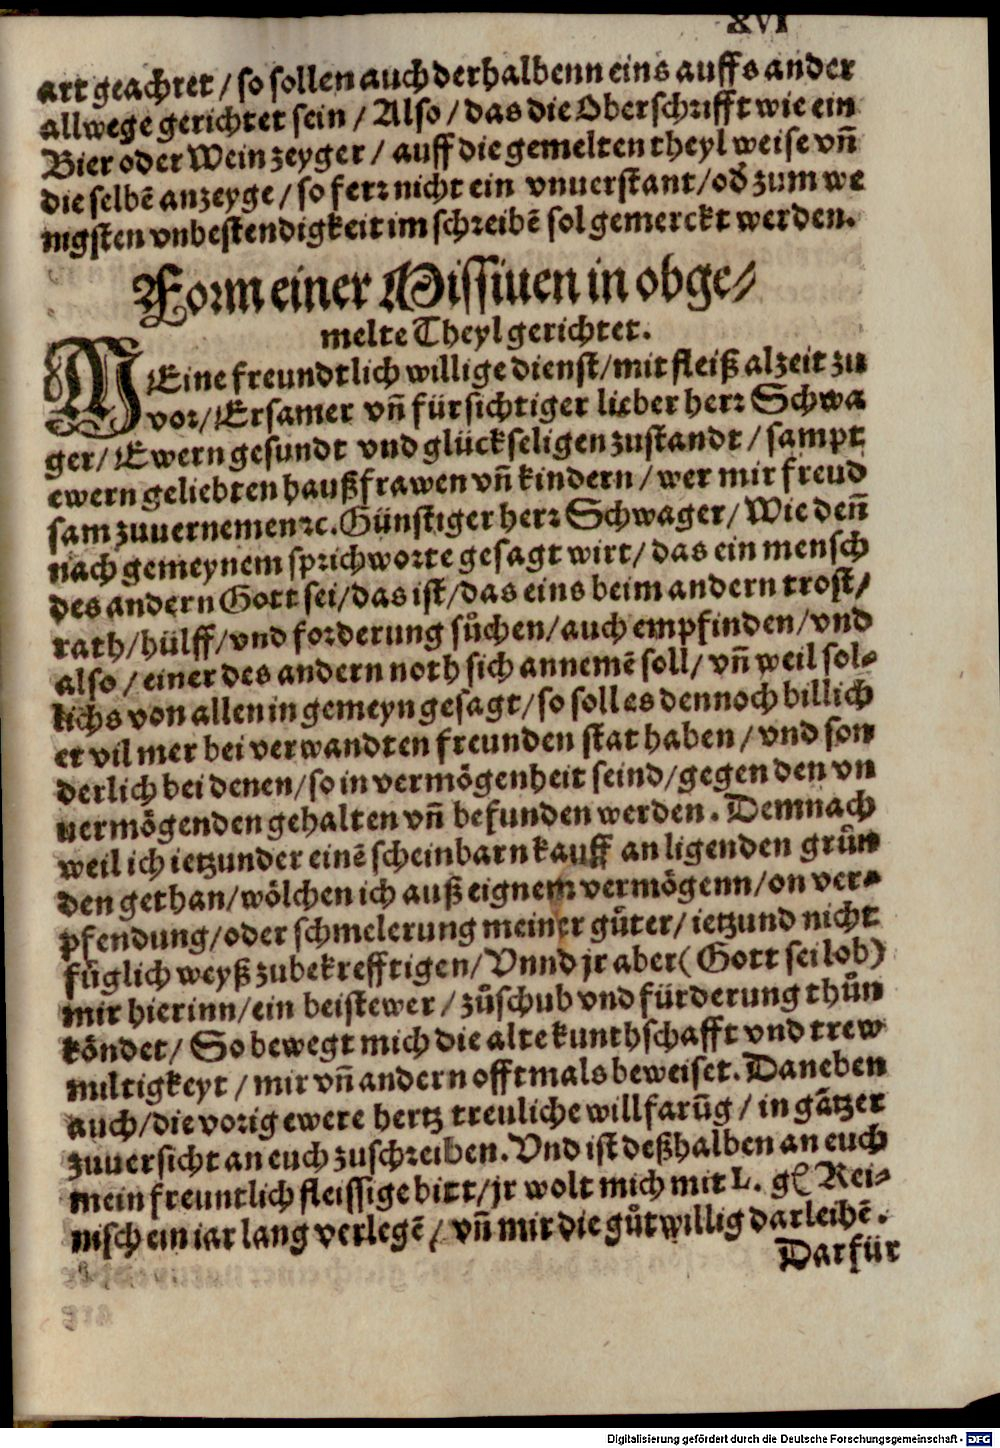 XVI
art geachtet / so sollen auch derhalbenn eins auffs ander
allwege gerichtet sein / Also / das die Oberschrifft wie ein
Bier oder Wein zeyger / auff die gemelten theyl weise vñ
die selbē anzeyge / so ferr nicht ein vnuerstant / od̕ zum we
nigsten vnbestendigkeit im schreibē sol gemerckt werden.
Form einer Missiuen in obge⸗
melte Theyl gerichtet.
MEine freundtlich willige dienst / mit fleiß alzeit zu
vor / Ersamer vñ fürsichtiger lieber herr Schwa
ger / Ewern gesundt vnd glückseligen zustandt / sampt
ewern geliebten haußfrawen vñ kindern / wer mir freud
sam zuuernemen ꝛc. Günstiger herr Schwager / Wie deñ
nach gemeynem sprichworte gesagt wirt / das ein mensch
des andern Gott sei / das ist / das eins beim andern trost /
rath / hülff / vnd forderung sůchen / auch empfinden / vnd
also / einer des andern noth sich annemē soll / vñ weil sol⸗
lichs von allen in gemeyn gesagt / so soll es dennoch billich
er vil mer bei verwandten freunden stat haben / vnd son
derlich bei denen / so in vermögenheit seind / gegen den vn
uermögenden gehalten vñ befunden werden. Demnach
weil ich ietzunder einē scheinbarn kauff an ligenden grůn
den gethan / wölchen ich auß eignem vermögenn / on ver⸗
pfendung / oder schmelerung meiner gůter / ietzund nicht
fůglich weyß zubekrefftigen / Vnnd jr aber ( Gott sei lob )
mir hierinn / ein beistewer / zůschub vnd fürderung thůn
köndet / So bewegt mich die alte kunthschafft vnd trew
miltigkeyt / mir vñ andern offtmals beweiset. Daneben
auch / die vorig ewere hertz treuliche willfarũg / in gãtzer
zuuersicht an euch zuschreiben. Vnd ist deßhalben an euch
mein freuntlich fleissige bitt / jr wolt mich mit L. gl Rei⸗
nisch ein iar lang verlegē / vñ mir die gůtwillig darleihē.
Darfür
Digitalisierung gefördert durch die Deutsche Forschungsgemeinschaft - DFG